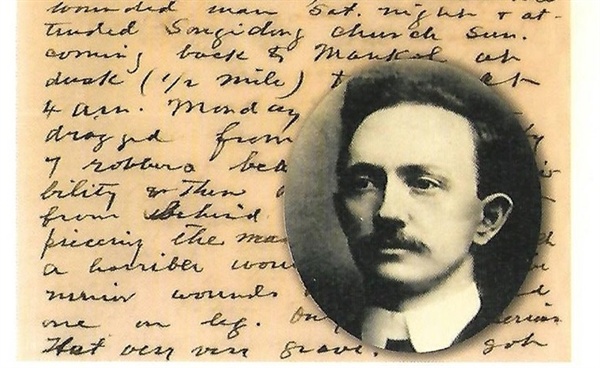 wounded man Sat. night & at-
tended Songiding church Sun.
coming back to Mankel at
dusk (1/2 mile) at
4 a.m. Monday
dragged from
7 robbers bea
bility & then
from behind
piecering the ma
a horriber wou
minor wounds
one on leg. On
that very very grave. got